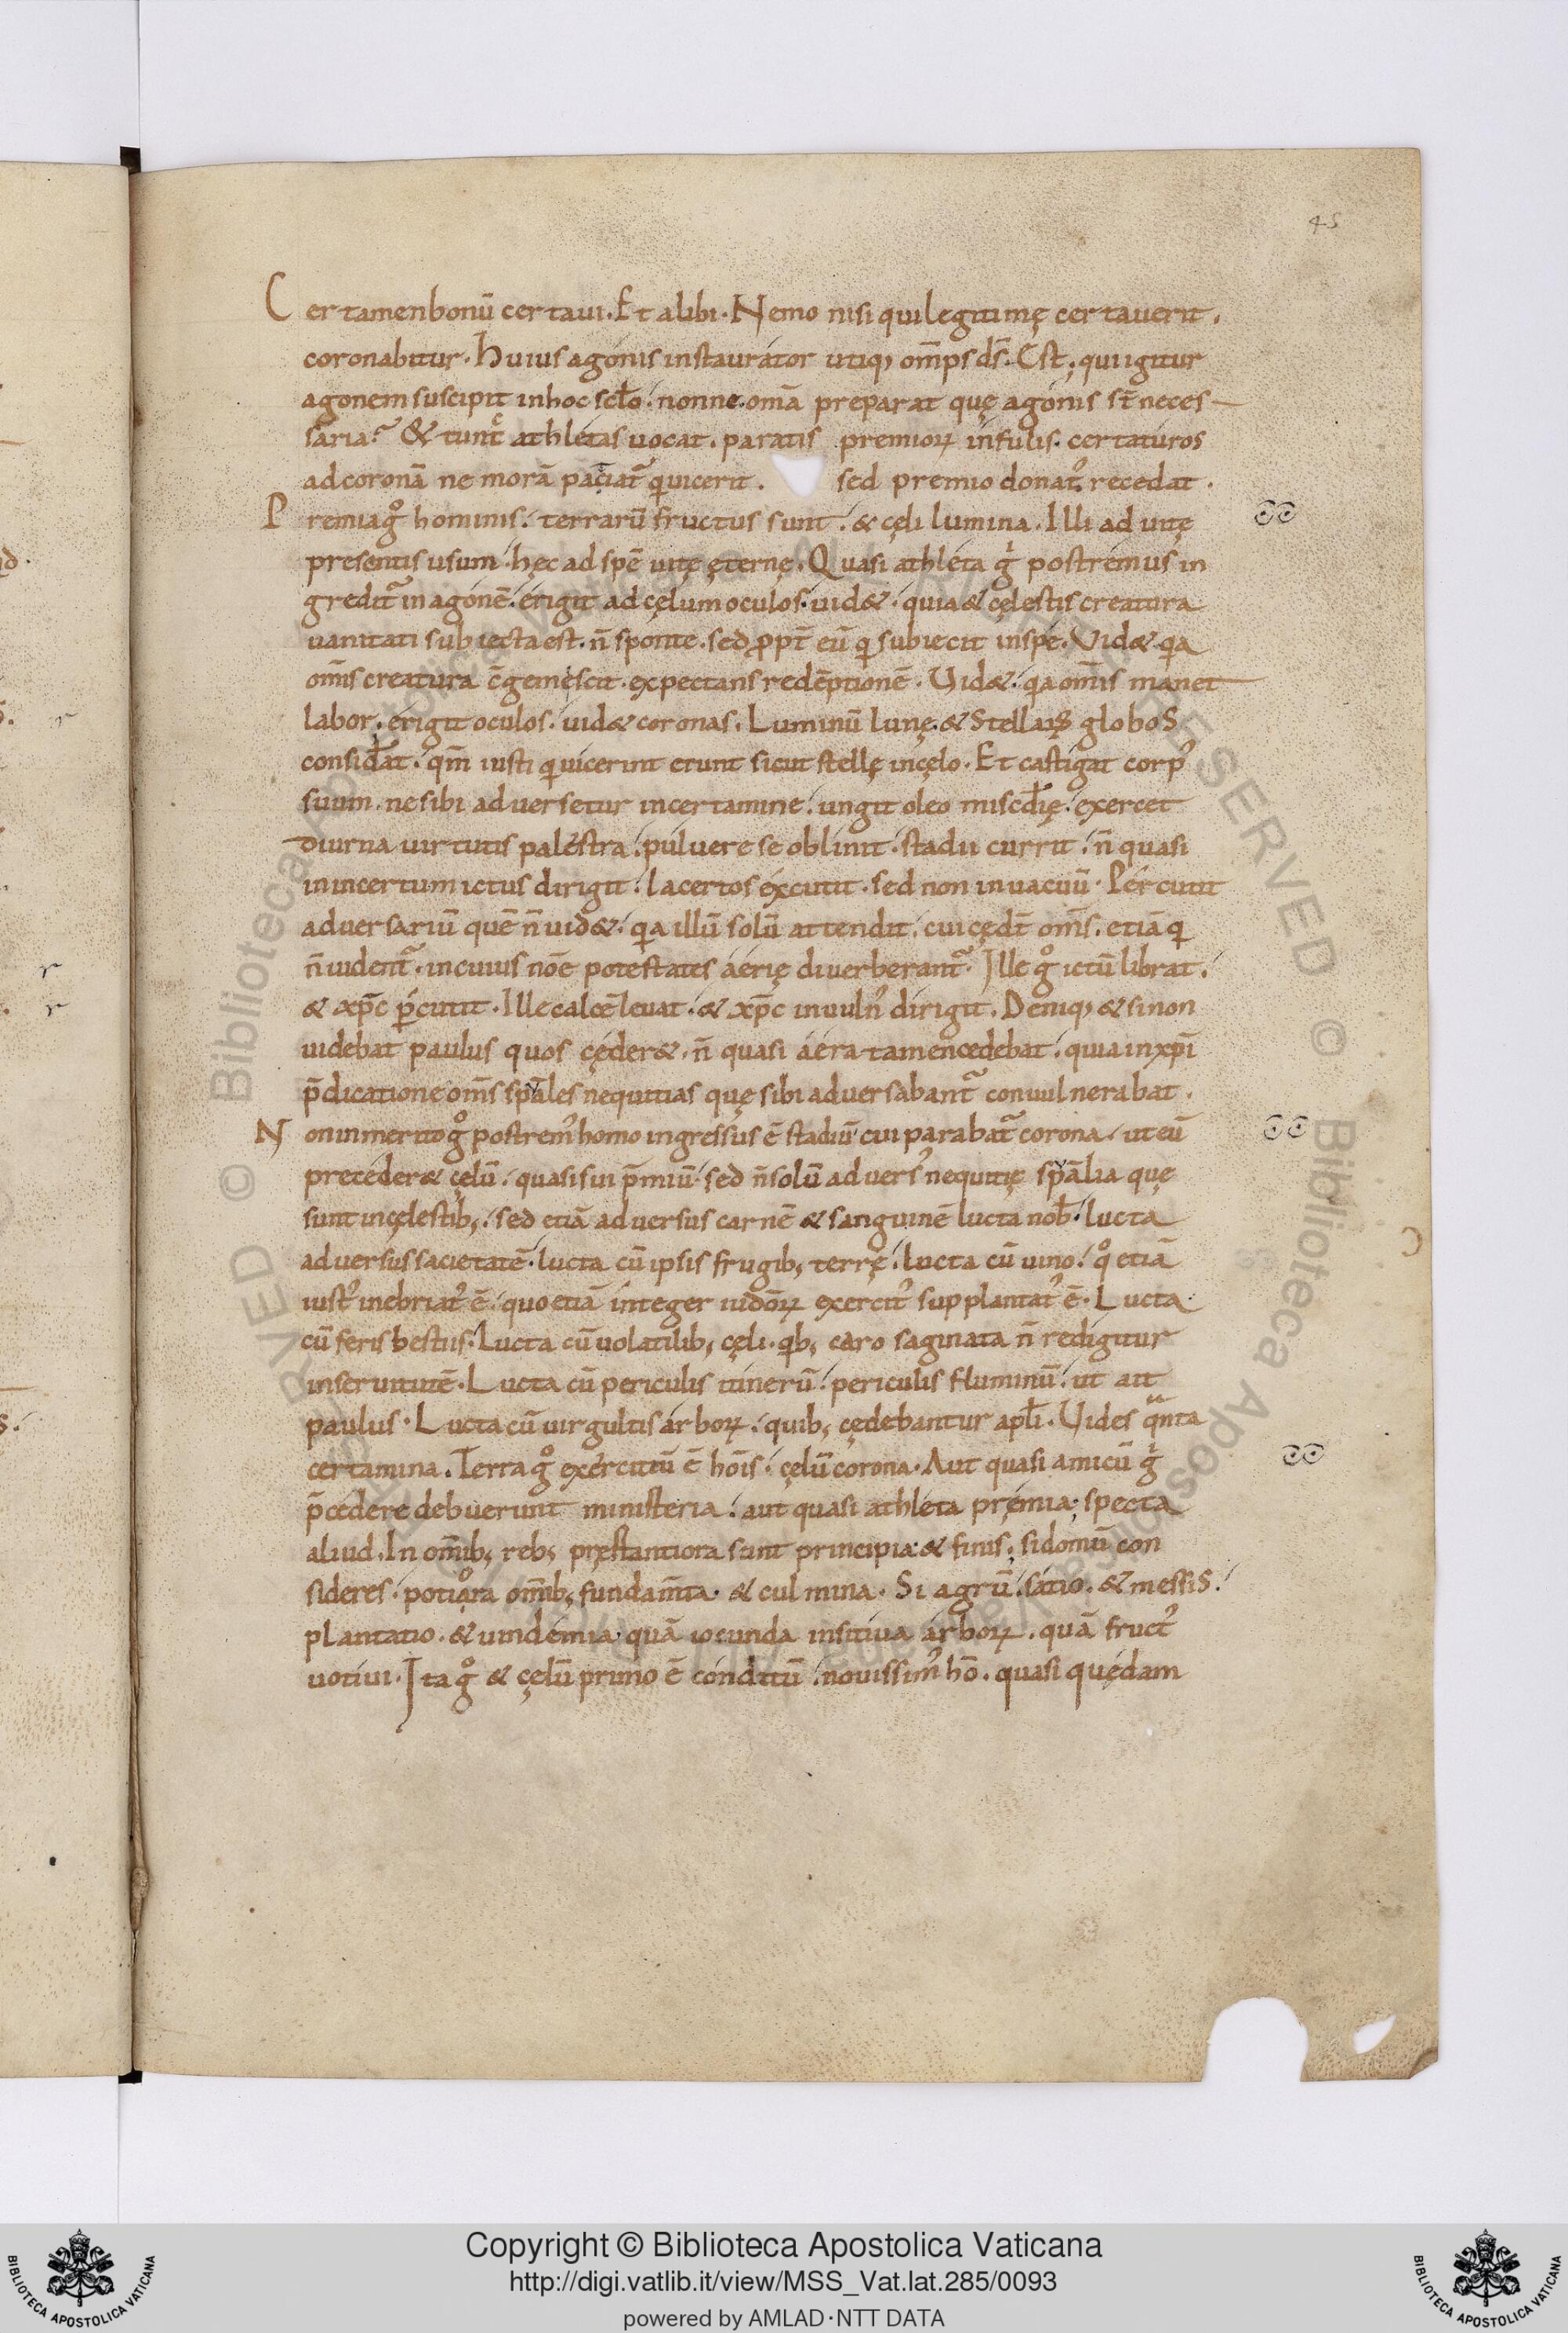 45
Certamen bonū certaui. Et alibi. Nemo nisi qui legitimę certauerit.
coronabitur. Huius agonis instaurator utiq; om̄ps d̄s. Est; qui igitur
agonem suscipit in hoc scło. nonne omā preparat quę agonis st̄ neces
saria? & tunc athletas uocat. paratis premioꝝ infulis. certaturos
ad coronā ne morā paciat̄ qui uicerit. sed premio donat᷒ recedat.
Premia gͦ hominis. terrarū fructus sunt. & cęli lumina. Illi ad uitę
presentis usum. hęc ad spē uitę ęternę. Quasi athleta gͥ postremus in
gredit̄ in agonē. erigit ad cęlum oculos. uid&. quia & cęlestis creatura
uanitati subiecta est. n̄ sponte. sed ꝓpt̄ eū qͥ subiecit in spe. Vid& qͥa
om̄is creatura c̄gemescit. expectans redēptionē. Vid&. qͥa om̄is manet
labor. erigit oculos. uid& coronas. Luminū lunę & Stellarꝝ globoS
consid̄at. qm̄ iusti qͥ uicerint erunt sicut stellę in cęlo. Et castigat corp᷒
suum. ne sibi aduersetur in certamine. ungit oleo miscd̄ię. exercet
diurna uirtutis palestra. puluere se oblinit. stadii currit. n̄ quasi
in incertum ictus dirigit. lacertos excutit. sed non in uacuū. Percutit
aduersariū quē n̄ uid&. qͥa illū solū attendit. cui cędt̄ om̄s. etiā qͥ
n̄ uident̄. in cuius noē potestates aerię diuerberant̄. Ille gͦ ictū librat.
& xp̄c p̄cutit. Ille calcē leuat. & xp̄c in uuln᷒ dirigit. Deniq; & si non
uidebat paulus quos cęder&. n̄ quasi aera tamen cedebat. quia in xp̄i
p̄dicatione om̄s sp̄ales nequitias quę sibi aduersabant̄ conuulnerabat.
Non inmerito gͦ postrem᷒ homo ingressus ē stadiū cui parabat̄ corona. ut eū
preceder& cęlū. quasi sui p̄miū. sed n̄ solū aduers᷒ nequitię sp̄alia quę
sunt in cęlestib;. sed etiā aduersus carnē & sanguinē lucta nob̄. lucta
aduersus sacietatē. lucta cū ipsis frugib; terrę. lucta cū uino. qͦ etiā
iust᷒ inebriat᷒ ē. quo etiā integer iudōꝝ exercit᷒ supplantat᷒ ē. Lucta
cū feris bestiis. Lucta cū uolatilib; cęli. qͥb; caro saginata n̄ redigitur
in seruitutē. Lucta cū periculis itinerū. periculis fluminū. ut ait
paulus. Lucta cū uirgultis arboꝝ. quib; cędebantur apłi. Vides qͣnta
certamina. Terra gͦ exercitiū ē hōis. cęlū corona. Aut quasi amicū gͥ
p̄cedere debuerunt ministeria. aut quasi athleta pręmia; specta
aliud. In om̄ib; reb; pręstantiora sunt principia & finis; si domū con
sideres. potiora om̄ib; fundam̄ta. & culmina. Si agrū. satio. & messiS.
plantatio. & uindemia. quā iocunda insitiua arboꝝ. quā fruct᷒
uotiui. Ita gͦ & cęlū primo ē conditū. nouissim᷒ hō. quasi quędam
Copyright © Biblioteca Apostolica Vaticana
http://digi.vatlib.it/view/MSS_Vat.lat.285/0093
powered by AMLAD·NTT DATA